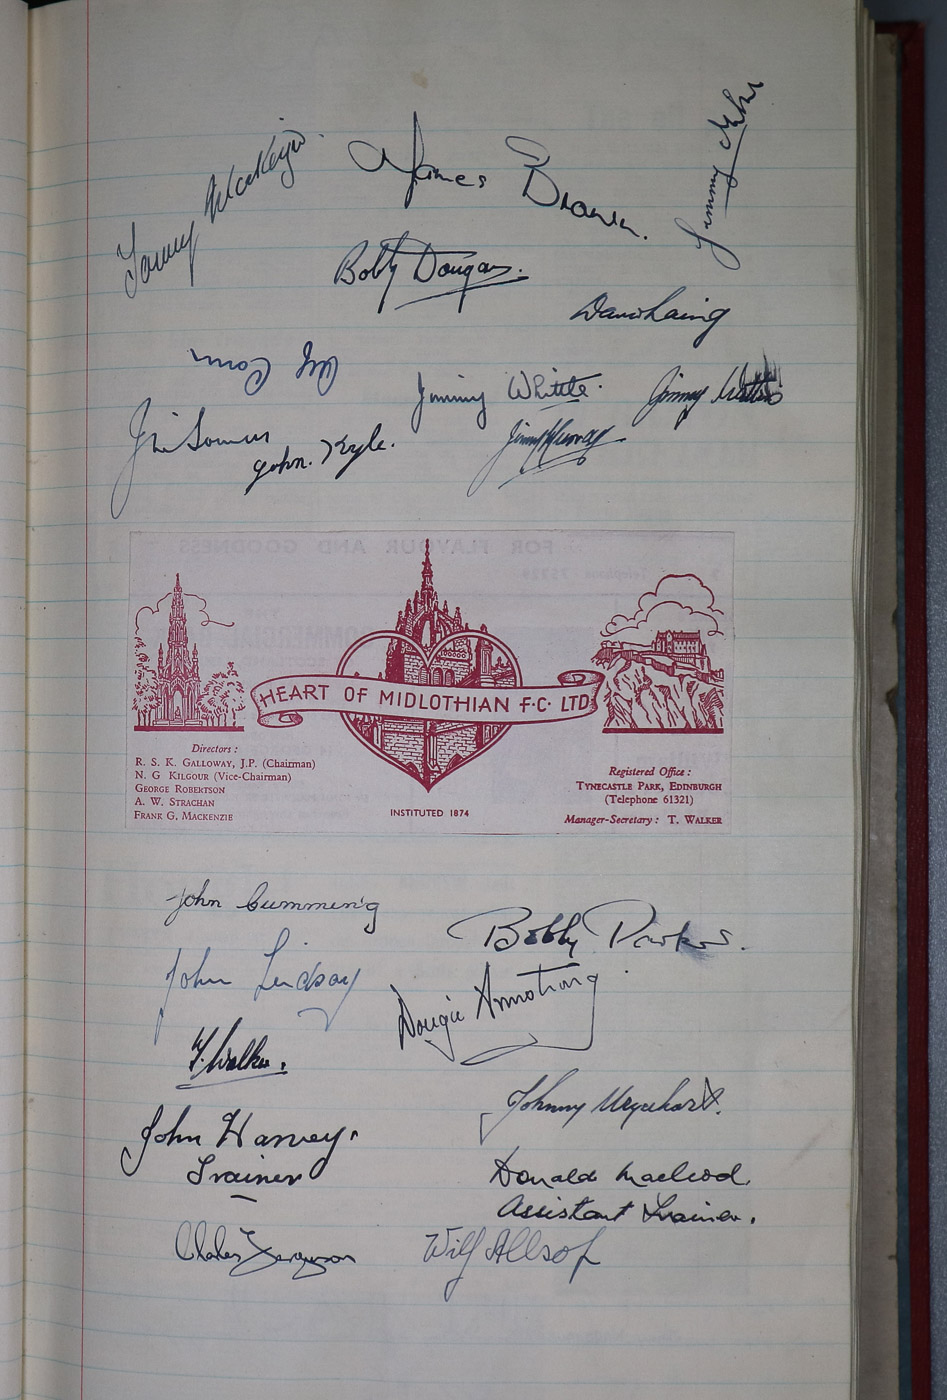 Tommy Mackenzie
James Brown.
Jimmy
Bobby Dougan.
Dave Laing
Alf Conn
Jimmy Whittle.
Jimmy Watters
Jim Souness
John. Kyle.
Jimmy Murray
HEART OF MIDLOTHIAN F.C. LTD
Directors:
R. S. K. GALLOWAY, J.P. (Chairman)
N. G KILGOUR (Vice-Chairman)
GEORGE ROBERTSON
A. W. STRACHAN
FRANK G. MACKENZIE
INSTITUTED 1874
Registered Office:
TYNECASTLE PARK, EDINBURGH
(Telephone 61321)
Manager-Secretary: T. WALKER
John Cumming
Bobby Parker.
John Lindsay
Dougie Armstrong
T. Walker.
Johnny Urquhart.
John Harvey.
Trainer
Donald Macleod
Assistant Trainer.
Charles Ferguson
Wilf Allsop